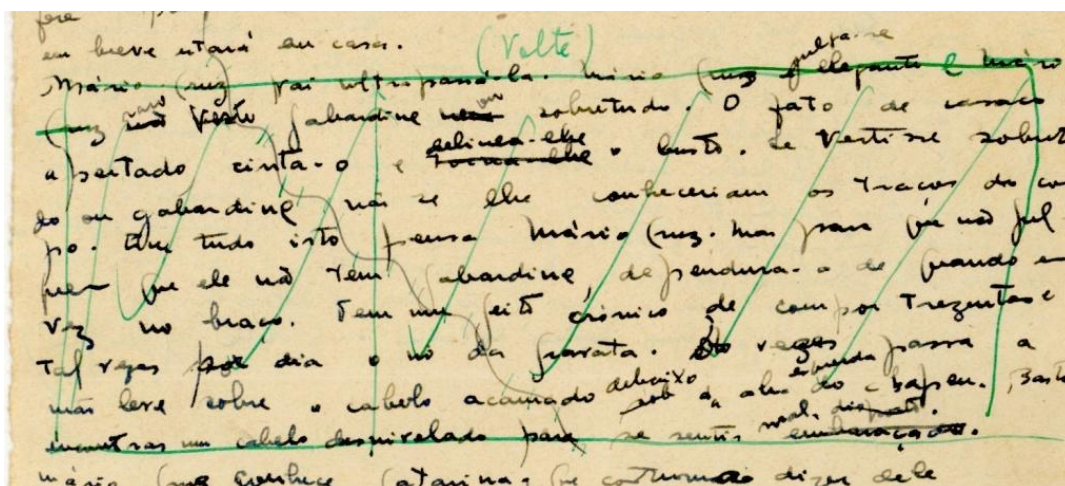 em breve estará em casa.
(Volte)
Mário Cruz vai ultrapassá-la. Mário Cruz julga-se elegante e Mário
Cruz não veste gabardine ou sobretudo. O fato de casaco
apertado cinta-o e delineia-lhe o busto. Se vestisse sobret
do ou gabardine não se lhe conheceriam os traços do cor
po. Em tudo isto pensa Mário Cruz. Mas para que não jul
guem que ele não tem gabardine, dependura-a de quando em
vez no braço. Tem um jeito crónico de compor trezentas e
tal vezes por dia o nó da gravata. vezes passa a
mão leve sobre o cabelo acamado debaixo da aba esquerda do chapéu. Basta
encontrar um cabelo desnivelado para se sentir mal disposto.
Mário Cruz conhece Catarina. dizer dele